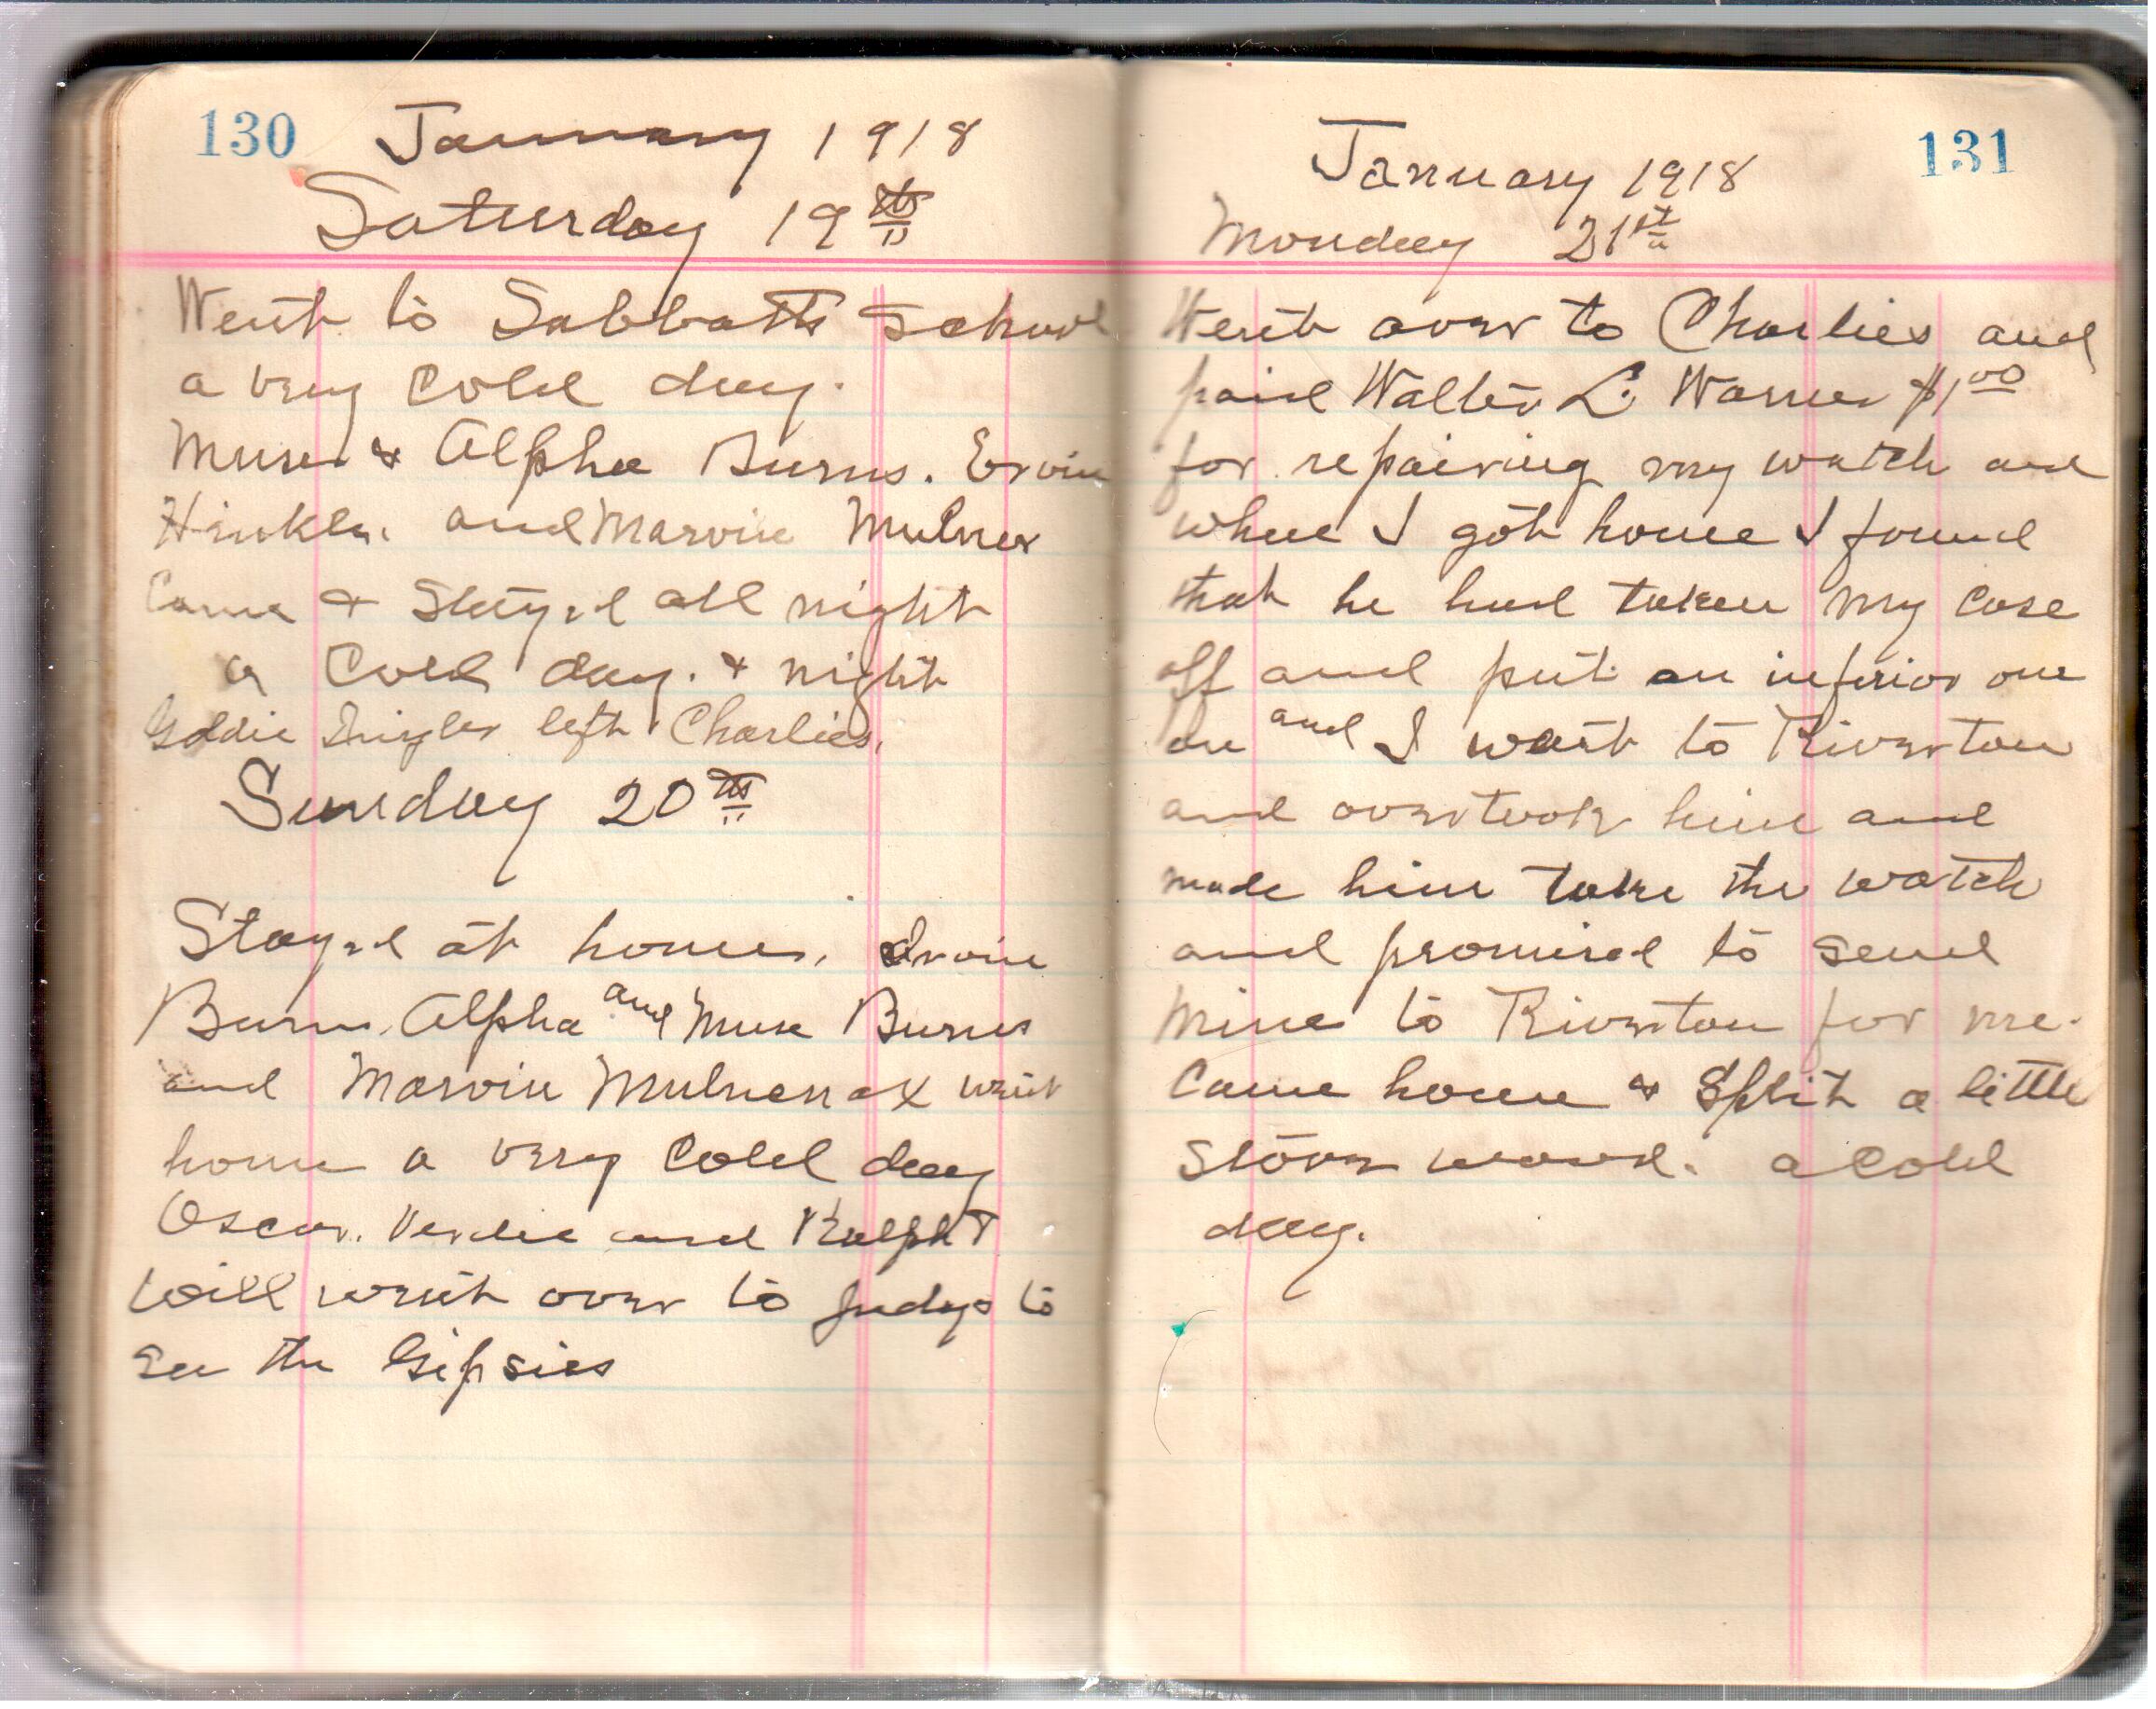 130 January 1918
Saturday 19th
Went to Sabbath School
a very cold day.
Muse & Alpha Burns. Ervin
Hinkle. and Marvin Mulnex
Came & Stayed all night
a Cold day. & night
Goldie left Charlies.
Sunday 20th
Stayed at home. Irvin
Burns. Alpha and Muse Burns
and Marvin Mulnenax went
home a very Cold day
Oscar. Verdie and Ralph T
Will went over to Judys to
See the Gipsies
January 1918 131
Monday 21st
Went over to Charlies and
paid Walter L. Warner $1.00
for repairing my watch and
when I got home I found
that he had taken my case
off and put an inferior one
on and I went to Riverton
and overtook him and
made him take the watch
and promised to send
Mine to Riverton for me.
Came home & Split a little
Stove wood. a Cold
day.